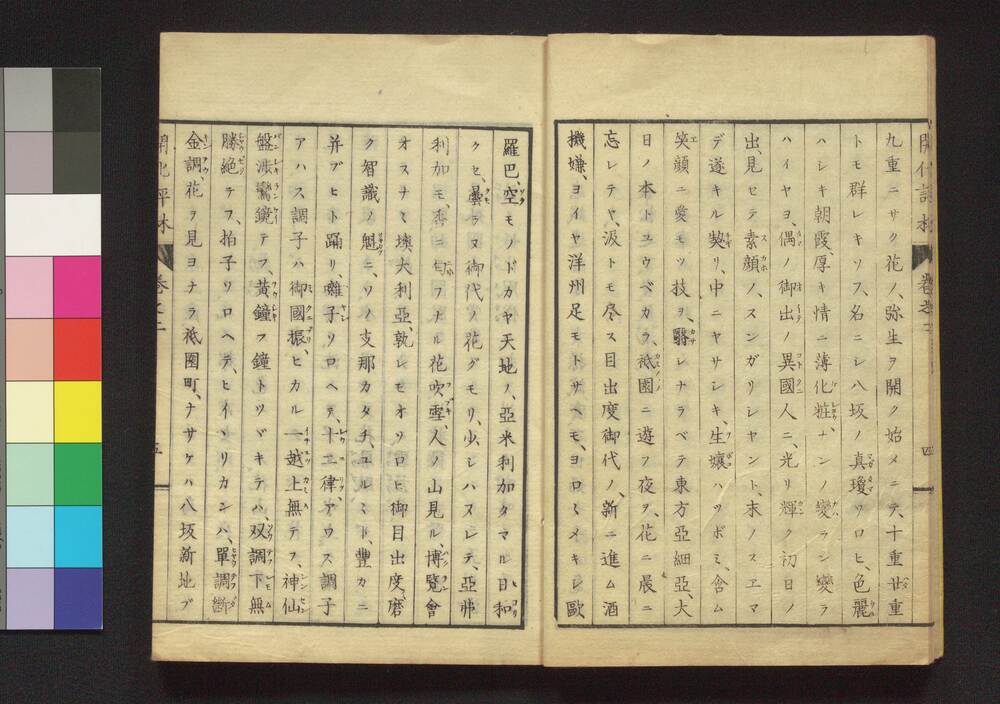 九重ニサク花ノ、弥生ヲ開ク始メニテ、十重廿重
トモ群レキソフ、名ニシ八坂ノ真瓊ソロヒ、色麗
ハシキ朝霞、厚キ情ニ薄化粧、ナンノ變ラン變ラ
ハイヤヨ、偶ノ御出ノ異國人ニ、光リ輝ク初日ノ
出、見セテ素顔ノ、スンガリシヤント、末ノスエマ
デ遂キル契リ、中ニヤサシキ、生孃ハツボミ、含ム
笑顔ニ愛モツ技ヲ、翳レナラベテ東方亞細亞、大
日ノ本トユウベカラ、祗園ニ遊フ夜ヲ、花ニ晨ニ
忘レテヤ、汲トモ尽ス目出度御代ノ、新ニ進ム酒
機嫌、ヨイヤ洋州足モトサヘモ、ヨロミメキレ歐
羅巴、空モノドカヤ天地ノ、亞米利加タマル日和
クセ、曇ラヌ御代ノ花グモリ、少シハヌレテ、亞弗
利加モ、香ニ匂フナル花吹雪、人ノ山見ル、博覧會
オスナミ墺大利亞、孰レモオソロヒ御目出度、磨
ク智識ノ魁ニ、ソノ支那カタチ、ユルミト、豊カニ
并ブヒト踊リ、囃子ソロヘテ、十二律、アウス調子
アハス調子ハ御國振、ヒカル一越上無テフ、神仙
盤渉鸞鏡テフ、黄鐘フ鐘トツヾキテハ、双調下無
勝絶テフ、拍子ソロヘテ、ヒイヽリカンハ、單調斷
金調、花ヲ見ヨナラ祗園町、ナサケハ八坂新地ブ
巻之二
五
四